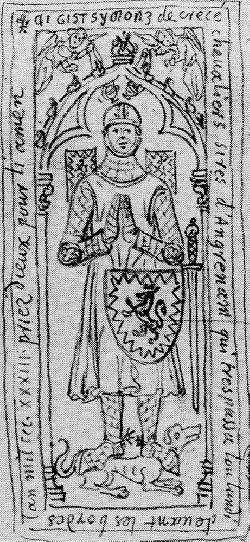 CI GIST SYMONZ de crecé
chevaliers sires d'Angremont qui trespassa lou lundi
devant les bordes
lan mil ccc. XXXIII. priez dieux pour li amen